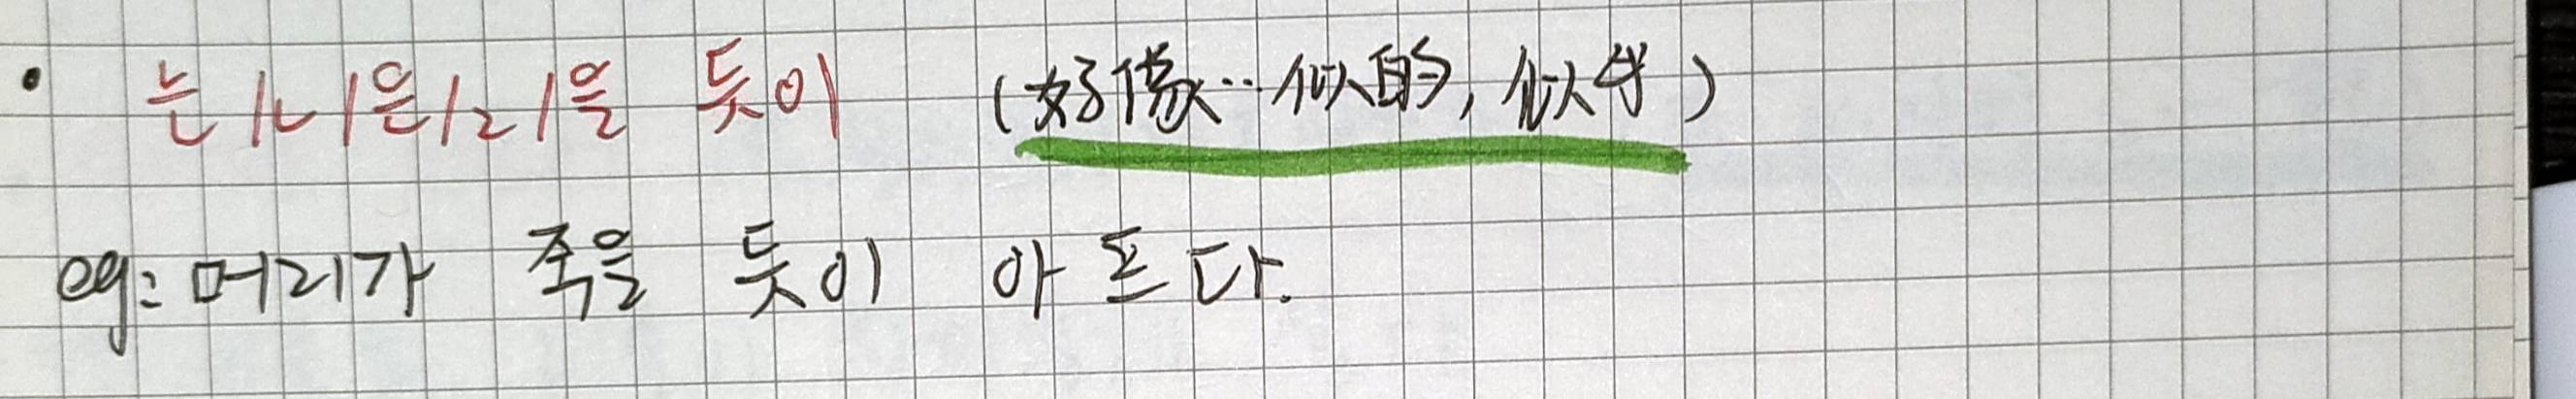 • 는/ㄴ/은/ㄹ/을 듯이 (好像…似的, 似乎)
eg: 머리가 죽을 듯이 아프다.